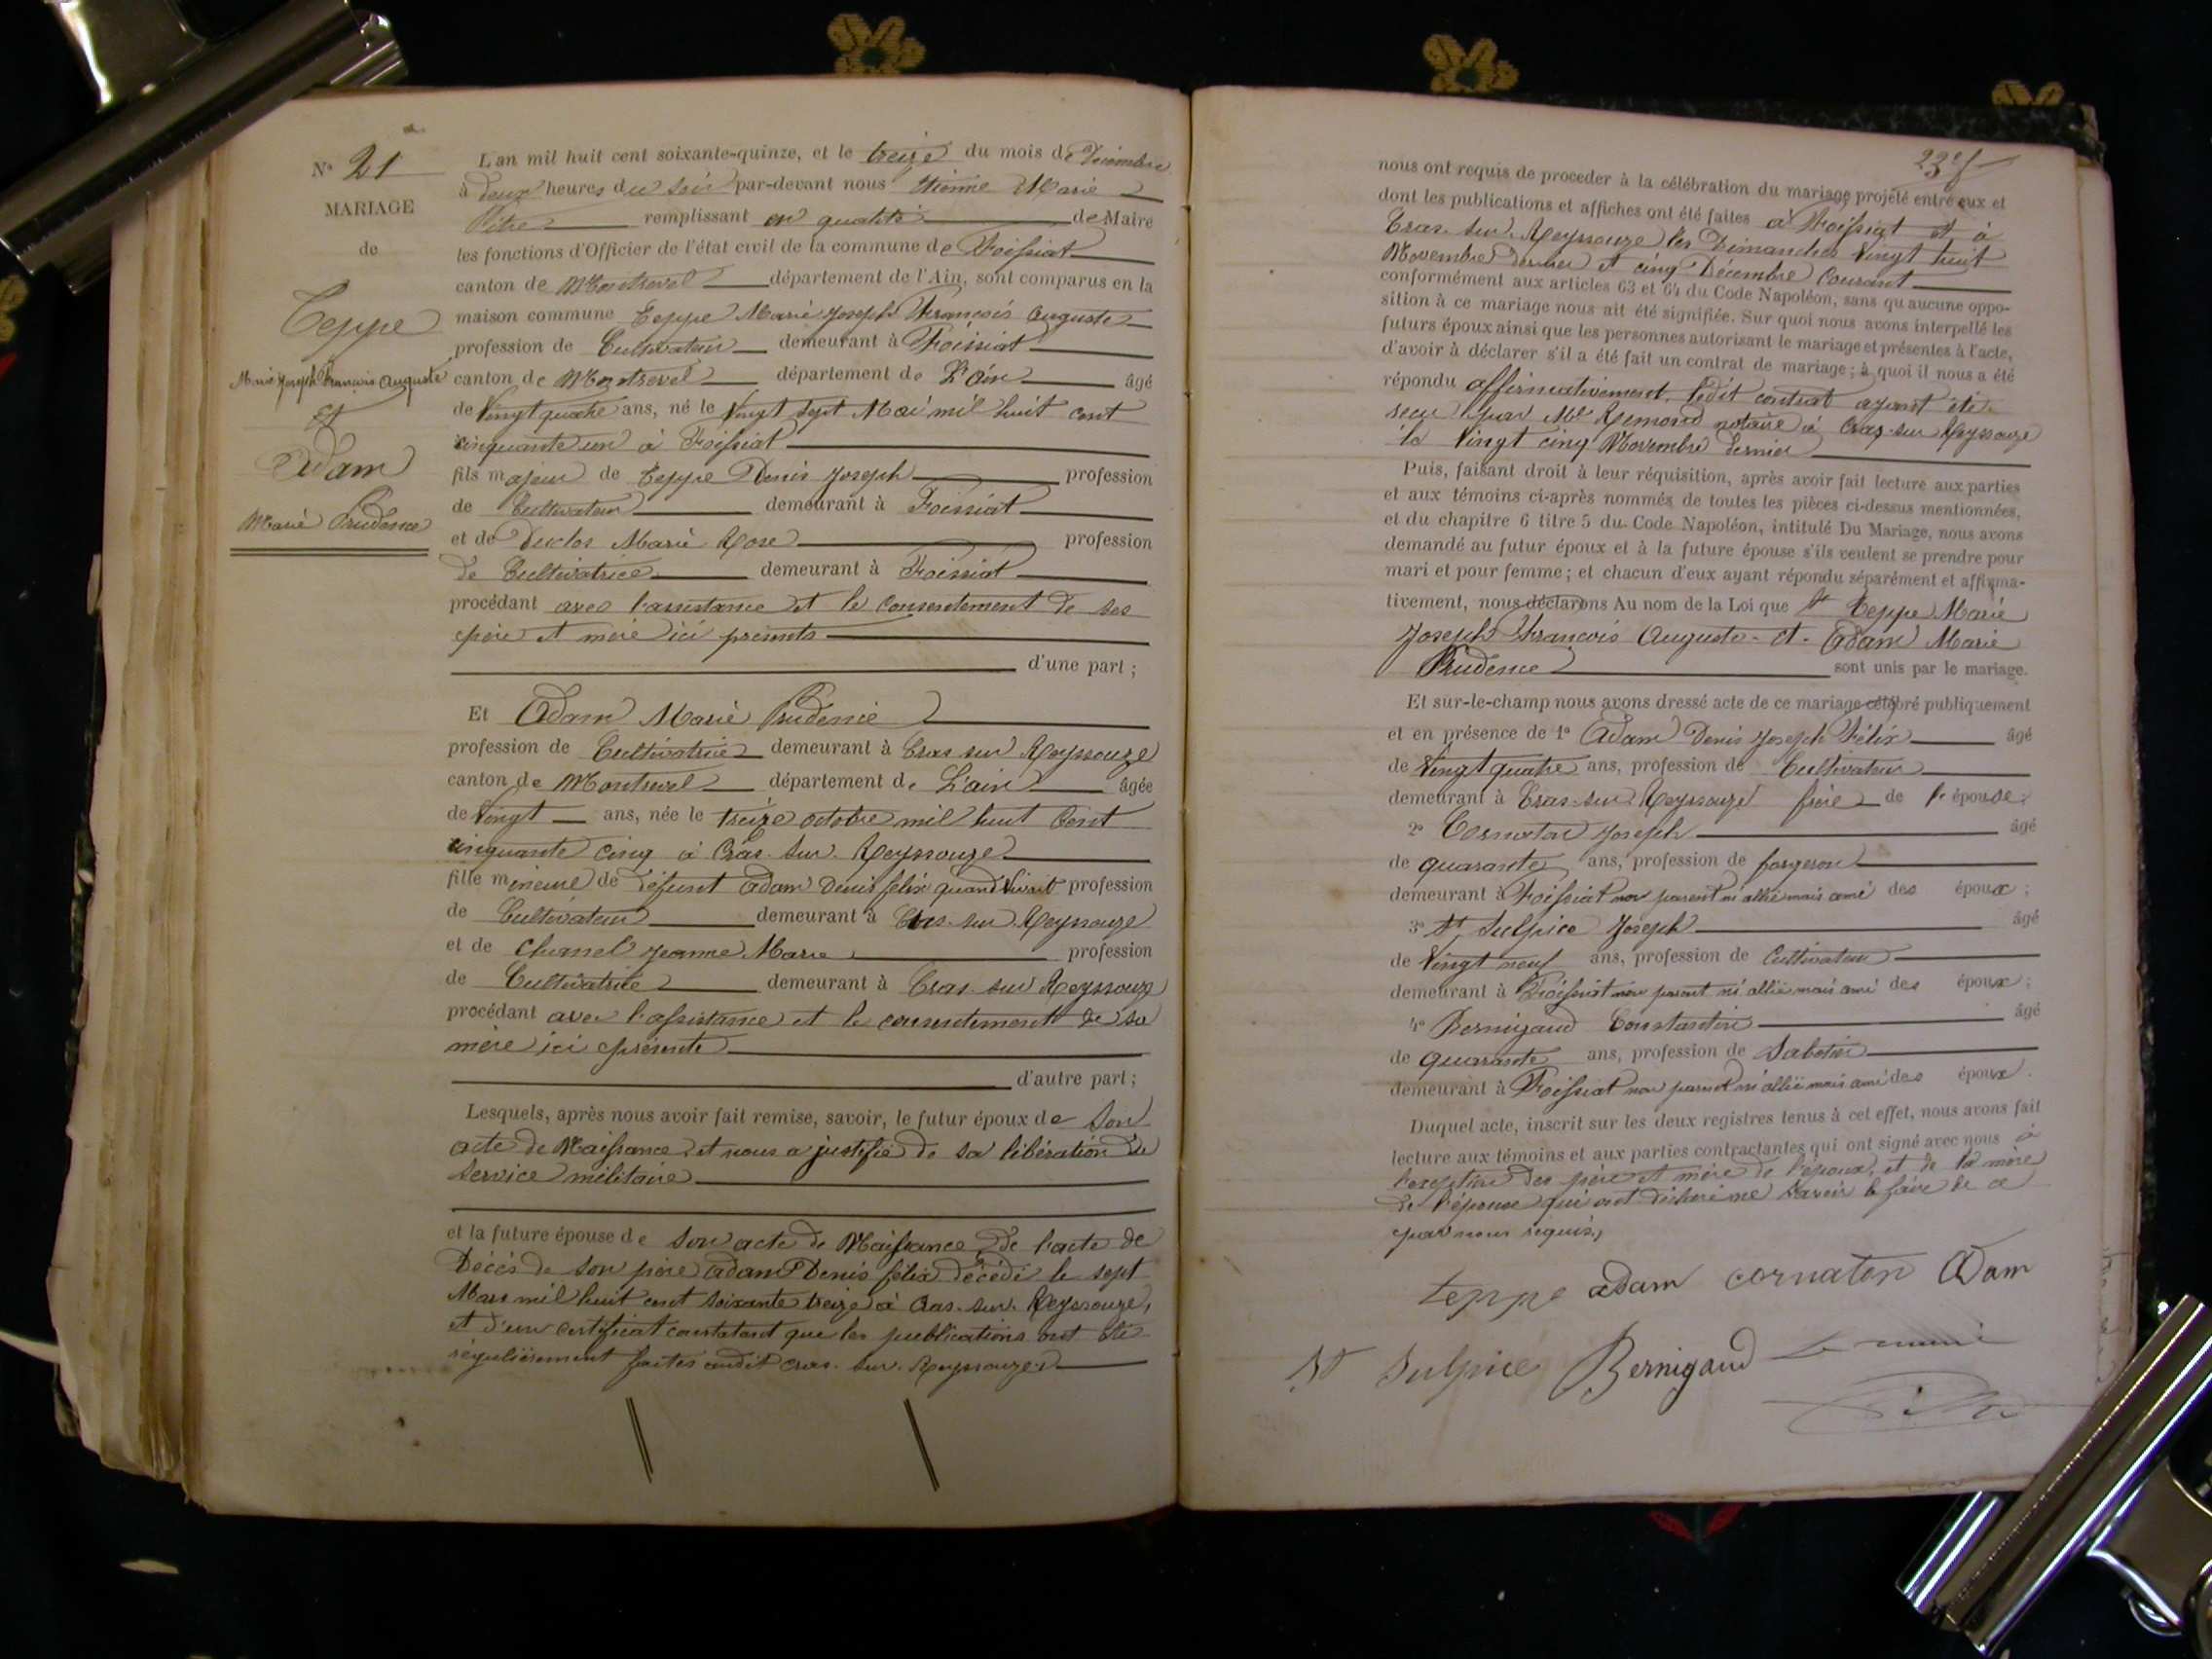 N° 21
MARIAGE
de
Teppe
Marie Joseph François Auguste
et
Adam
Marie Prudence
L'an mil huit cent soixante-quinze, et le treize du mois de Décembre
à deux heures du soir par-devant nous Etienne Marie
Pitre remplissant en qualité de Maire
les fonctions d'Officier de l'état civil de la commune de Foissiat
canton de Montrevel département de l'Ain, sont comparus en la
maison commune Teppe Marie Joseph François Auguste
profession de Cultivateur demeurant à Foissiat
canton de Montrevel département de L'ain âgé
de Vingt quatre ans, né le Vingt Sept Mai mil huit cent
cinquante un à Foissiat
fils majeur de Teppe Denis Joseph profession
de Cultivateur demeurant à Foissiat
et de Duclos Marie Rose profession
de Cultivatrice demeurant à Foissiat
procédant avec l'assistance et le consentement de ses
père et mère ici présents
d'une part ;
Et Adam Marie Prudence
profession de Cultivatrice demeurant à Cras sur Reyssouze
canton de Montrevel département de L'ain âgée
de Vingt ans, née le treize octobre mil huit Cent
cinquante cinq à Cras. sur. Reyssouze
fille mineure de défunt Adam Denis félix quand Vivait profession
de Cultivateur demeurant à Cras. sur. Reyssouze
et de Chanel Jeanne Marie profession
de Cultivatrice demeurant à Cras. sur Reyssouze
procédant avec l'assistance et le consentement de sa
mère ici présente
d'autre part ;
Lesquels, après nous avoir fait remise, savoir, le futur époux de Son
acte de Naissance et nous a justifié de sa libération du
Service militaire
et la future épouse de Son acte de Naissance, De l'acte de
Décès de son père Adam Denis félix décédé le sept
Mars mil huit cent soixante treize à Cras. sur. Reyssouze,
et d'un certificat constatant que les publications ont été
régulièrement faites audit Cras. sur. Reyssouze
23
nous ont requis de proceder à la célébration du mariage projété entre eux et
dont les publications et affiches ont été faites à Foissiat et à
Cras. sur. Reyssouze les Dimanches Vingt huit
Novembre dernier et cinq Décembre Courant
conformément aux articles 63 et 64 du Code Napoléon, sans qu'aucune oppo-
sition à ce mariage nous ait été signifiée. Sur quoi nous avons interpellé les
futurs époux ainsi que les personnes autorisant le mariage et présentes à l'acte,
d'avoir à déclarer s'il a été fait un contrat de mariage ; à quoi il nous a été
répondu affirmativement, ledit contrat ayant été
reçu par Me Remond notaire à Cras. sur Reyssouze
le Vingt cinq Novembre dernier
Puis, faisant droit à leur réquisition, après avoir fait lecture aux parties
et aux témoins ci-après nommés de toutes les pièces ci-dessus mentionnées,
et du chapitre 6 titre 5 du Code Napoléon, intitulé Du Mariage, nous avons
demandé au futur époux et à la future épouse s'ils veulent se prendre pour
mari et pour femme ; et chacun d'eux ayant répondu séparément et affirma-
tivement, nous déclarons Au nom de la Loi que Teppe Marie
Joseph François Auguste - et - Adam Marie
Prudence sont unis par le mariage.
Et sur-le-champ nous avons dressé acte de ce mariage célébré publiquement
et en présence de 1° Adam Denis Joseph Félix âgé
de Vingt quatre ans, profession de Cultivateur
demeurant à Cras. sur. Reyssouze frère de l'épouse
2° Cornaton Joseph âgé
de quarante ans, profession de forgeron
demeurant à Foissiat non parent ni allié mais ami des époux ;
3° St Sulpice Joseph âgé
de Vingt neuf ans, profession de Cultivateur
demeurant à Foissiat non parent ni allié mais ami des époux ;
4° Bernigaud Constantin âgé
de quarante ans, profession de Sabotier
demeurant à Foissiat non parent ni allié mais ami des époux.
Duquel acte, inscrit sur les deux registres tenus à cet effet, nous avons fait
lecture aux témoins et aux parties contractantes qui ont signé avec nous à
l'exception des père et mère de l'époux, et de la mère
de l'épouse qui ont déclaré ne savoir le faire de ce
par nous requis,
teppe adam cornaton Adam
St Sulpice Bernigaud Le maire
Pitre